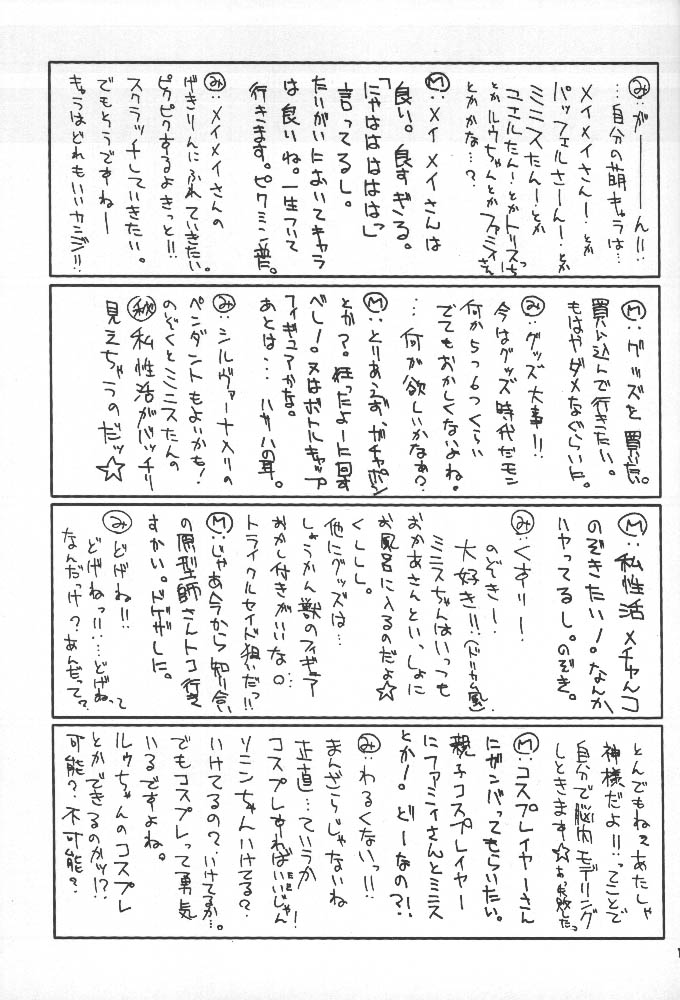 み:がーーーん!!
…自分の萌キャラは…
メイメイさんー!とか
パッフェルさーん!とか
ミニスたん!とか
ユエルたん!とかトリスっち
とかルウちゃんとかファミィさん
とかかな…?
M:メイメイさんは
良い。良すぎる。
「にゃははははっ」
言ってるし。
たいがいにおいてキャラ
は良いね。一生ついて
行きます。ピクミン並。
み:メイメイさんの
げきりんにふれていきたい。
ピクピクするよきっと!!
スクラッチしていきたい。
でもそうですねー
きゃらはどれもいいカンジ!!
M:グッズを買いたい。
買い込んで行きたい。
もはやダメなぐらいに。
み:グッズ大事!!
今はグッズ時代だモン
何から5つ6つくらい
でてもおかしくないよね。
…何が欲しいかなぁ?
M:とりあえず、ガチャポン
とか?。狂ったよーに回す
べし!。又はボトルキャップ
フィギュアかな。
あとは…ハサハの耳。
み:シルヴァーナメリの
ペンダントもよいかも!
のぞくとミニスたんの
㊙私性活がバッチリ
見えちゃうのだッ☆
M:私性活メチャんコ
のぞきたい!。なんか
ハヤってるし。のぞき。
み:くすりー!
のぞきー!
大好き!!(ドリカム風)
ミニスちゃんはいっつも
おかあさんといっしょに
お風呂に入るのだよ☆
くししし。
他にグッズは…
しょうかん獣のフィギュア
おかし付きがいいな。…
トライクルセイド狙いだっ!!
M:じゃあ今から知り合い
の原型師さんトコ行き
ますかい。ドゲザしに。
み:どげね!!
どげねっ!!…どげねって
なんだっけ?あんだって?
とんでもねぇあたしゃ
神様だよ!!ってことで
自分で脳内モデリング
しときます☆あ、失敗したっ
M:コスプレイヤーさん
にガンバってもらいたい。
親子コスプレイヤー
にファミィさんとミニス
とか!。どーなの?!
み:わるくないっ!!
まんざらじゃないね
正直…ていうか
コスプレすればいいじゃん!
ソニンちゃんいけてる?
いけてるの?いけてるか…。
でもコスプレって勇気
いるですよね。
ルゥちゃんのコスプレ
とかできるのかッ!?
可能?不可能?